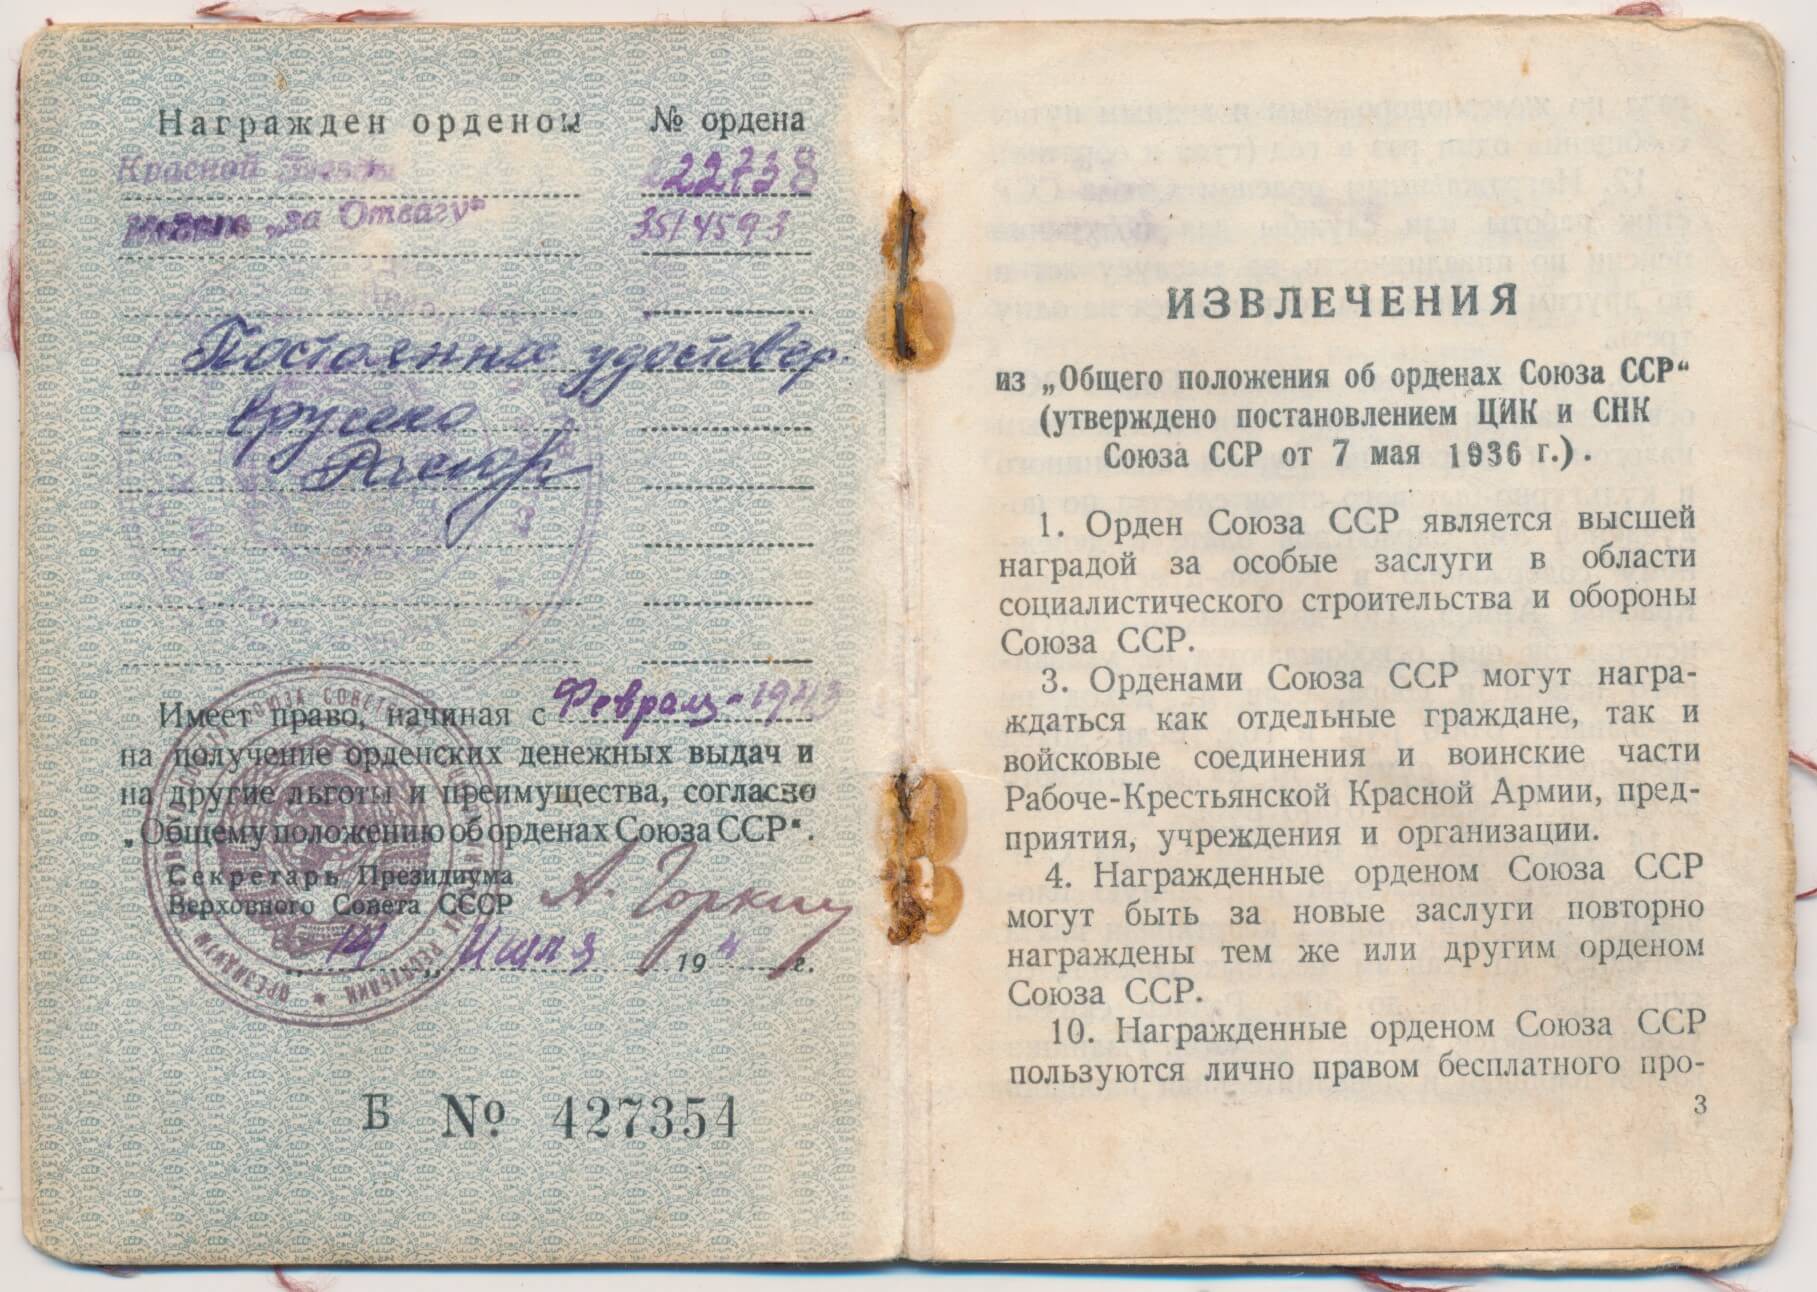 Награжден орденом № ордена
Красной Звезды 222738
Медаль „за Отвагу" 3514593
Постоянное удостовер.
вручено
Имеет право, начиная с Февраля - 1943
на получение орденских денежных выдач и
на другие льготы и преимущества, согласно
„Общему положению об орденах Союза ССР".
Секретарь Президиума
Верховного Совета СССР
А. Горкин
19 г.
Б № 427354
ИЗВЛЕЧЕНИЯ
из „Общего положения об орденах Союза ССР"
(утверждено постановлением ЦИК и СНК
Союза ССР от 7 мая 1936 г.).
1. Орден Союза ССР является высшей
наградой за особые заслуги в области
социалистического строительства и обороны
Союза ССР.
3. Орденами Союза ССР могут награ-
ждаться как отдельные граждане, так и
войсковые соединения и воинские части
Рабоче-Крестьянской Красной Армии, пред-
приятия, учреждения и организации.
4. Награжденные орденом Союза ССР
могут быть за новые заслуги повторно
награждены тем же или другим орденом
Союза ССР.
10. Награжденные орденом Союза ССР
пользуются лично правом бесплатного про-
3